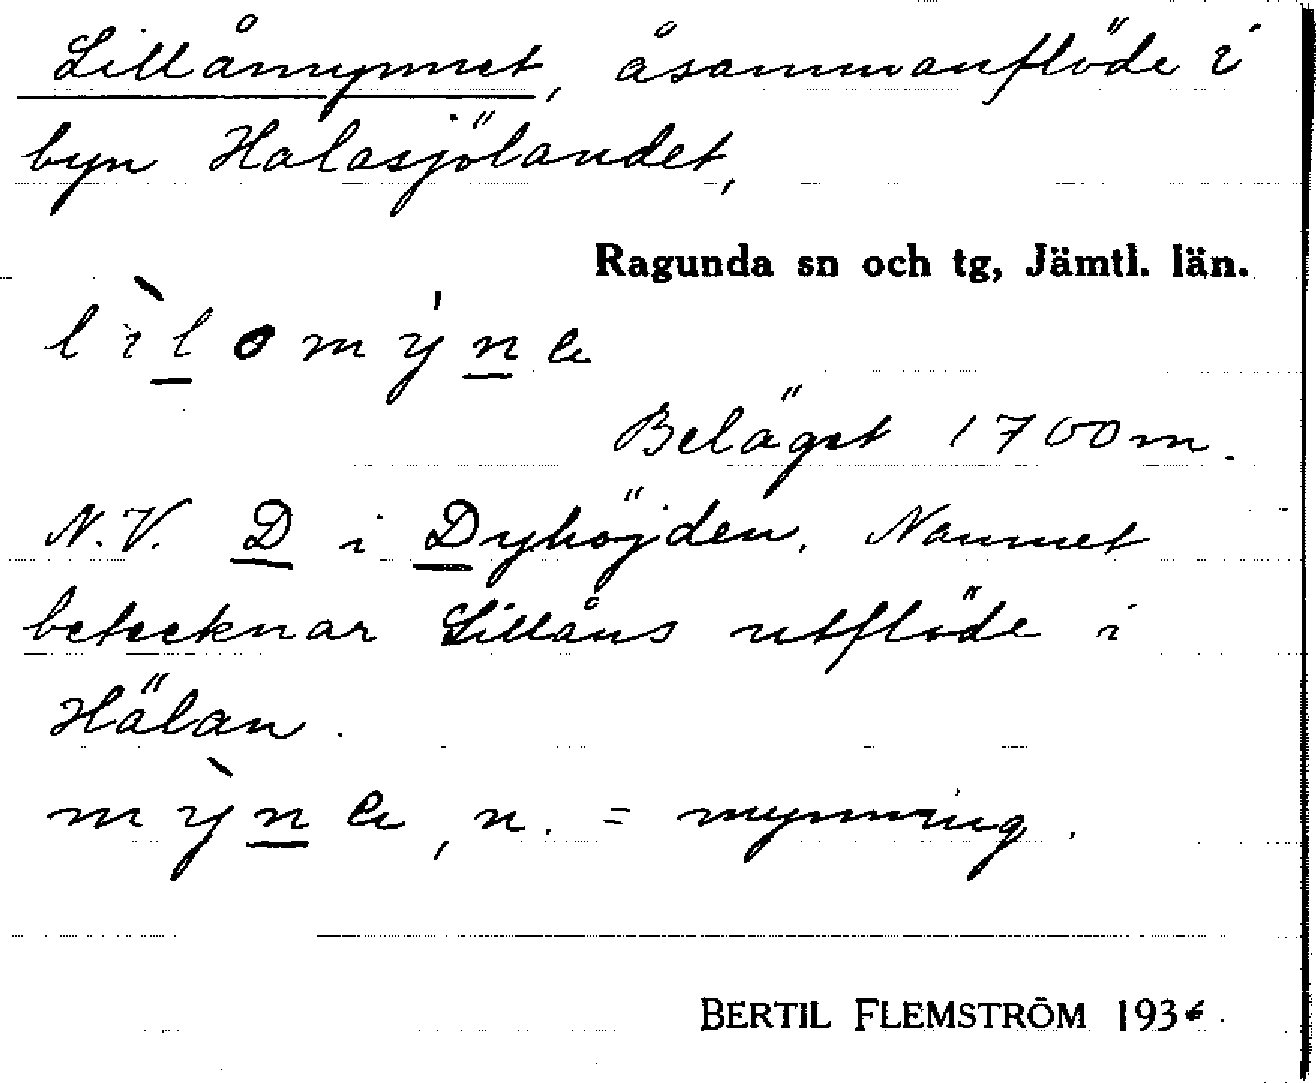 Lillåmynnet, åsammanflöde i
byn Halasjölandet,
Ragunda sn och tg, Jämtl. län.
lìlomýne
Beläget 1700 m.
N.V. D i Dyhöjden. Namnet
betecknar Lillåns utflöde i
Hälån.
mỳne, n. = mynning.
BERTIL FLEMSTRÖM 193